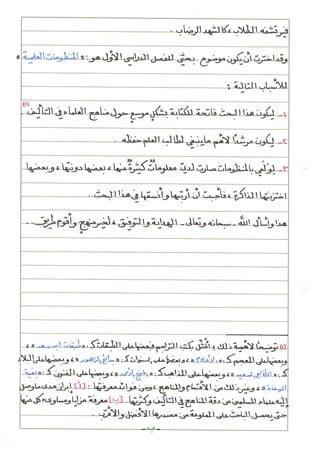 فيرتشفه الطلاب، كالشهد الرضاب.
وقد اخترت أن يكون موضوع بحثي للفصل الدراسي الأول هو: «المنظومات العلمية»
للأسباب التالية:
١- ليكون هذا البحث فاتحة للكتابة بشكل موسع حول مناهج العلماء في التأليف.(١)
٢- ليكون مرشدًا لأهم ما ينبغي لطالب العلم حفظه.
٣- لولعي بالمنظومات صارت لدي معلومات كثيرة عنها، بعضها دونتها، وبعضها
اختزنتها الذاكرة، فأحببت أن أرتبها وأنسقها في هذا البحث.
هذا وأسأل الله - سبحانه وتعالى - الهداية والتوفيق، لخير منهج وأقوم طريق..
(١) توضيحًا لأهمية ذلك، أمثل بكتب التراجم فبعضها على الطبقات كـ: «طبقات ابن سعد»،
وبعضها على المعجم كـ: «الأعلام»، وبعضها على السنوات كـ: «بدائع الزهور»، وبعضها على البلاد
كـ: «الطالع السعيد»، وبعضها على المذاهب كـ: وبعضها على الفنون كـ: «بغية
الوعاة»، وغير ذلك من الأقسام والمناهج، ومن فوائد معرفتها: [أ] إبراز مدى ما وصل
إليه علماء المسلمين من دقة المناهج في التأليف وكثرتها. [ب] معرفة مزايا ومساوئ كل منها
حتى يحصل الباحث على المعلومة من مصدرها الأفضل والأقرب.
- ٢ -